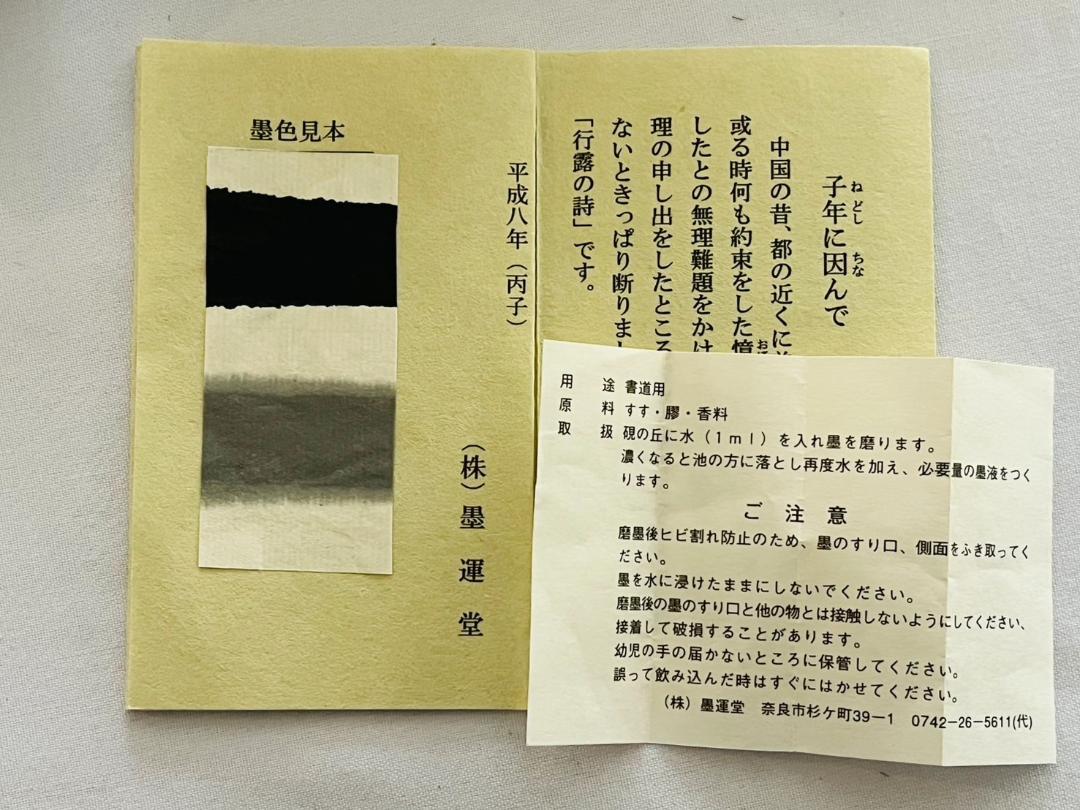 子年に因んで
ねどし ちな
中国の昔、都の近くに
或る時何も約束をした憶
おぼ
したとの無理難題をかけ
理の申し出をしたところ
ないときっぱり断りまし
「行露の詩」です。
平成八年（丙子）
（株）墨運堂
墨色見本
用途 書道用
原料 すす・膠・香料
取扱 硯の丘に水（１ｍｌ）を入れ墨を磨ります。
濃くなると池の方に落とし再度水を加え、必要量の墨液をつく
ります。
ご注意
磨墨後ヒビ割れ防止のため、墨のすり口、側面をふき取ってく
ださい。
墨を水に浸けたままにしないでください。
磨墨後の墨のすり口と他の物とは接触しないようにしてください、
接着して破損することがあります。
幼児の手の届かないところに保管してください。
誤って飲み込んだ時はすぐにはかせてください。
（株）墨運堂 奈良市杉ケ町39－1 0742－26－5611(代)